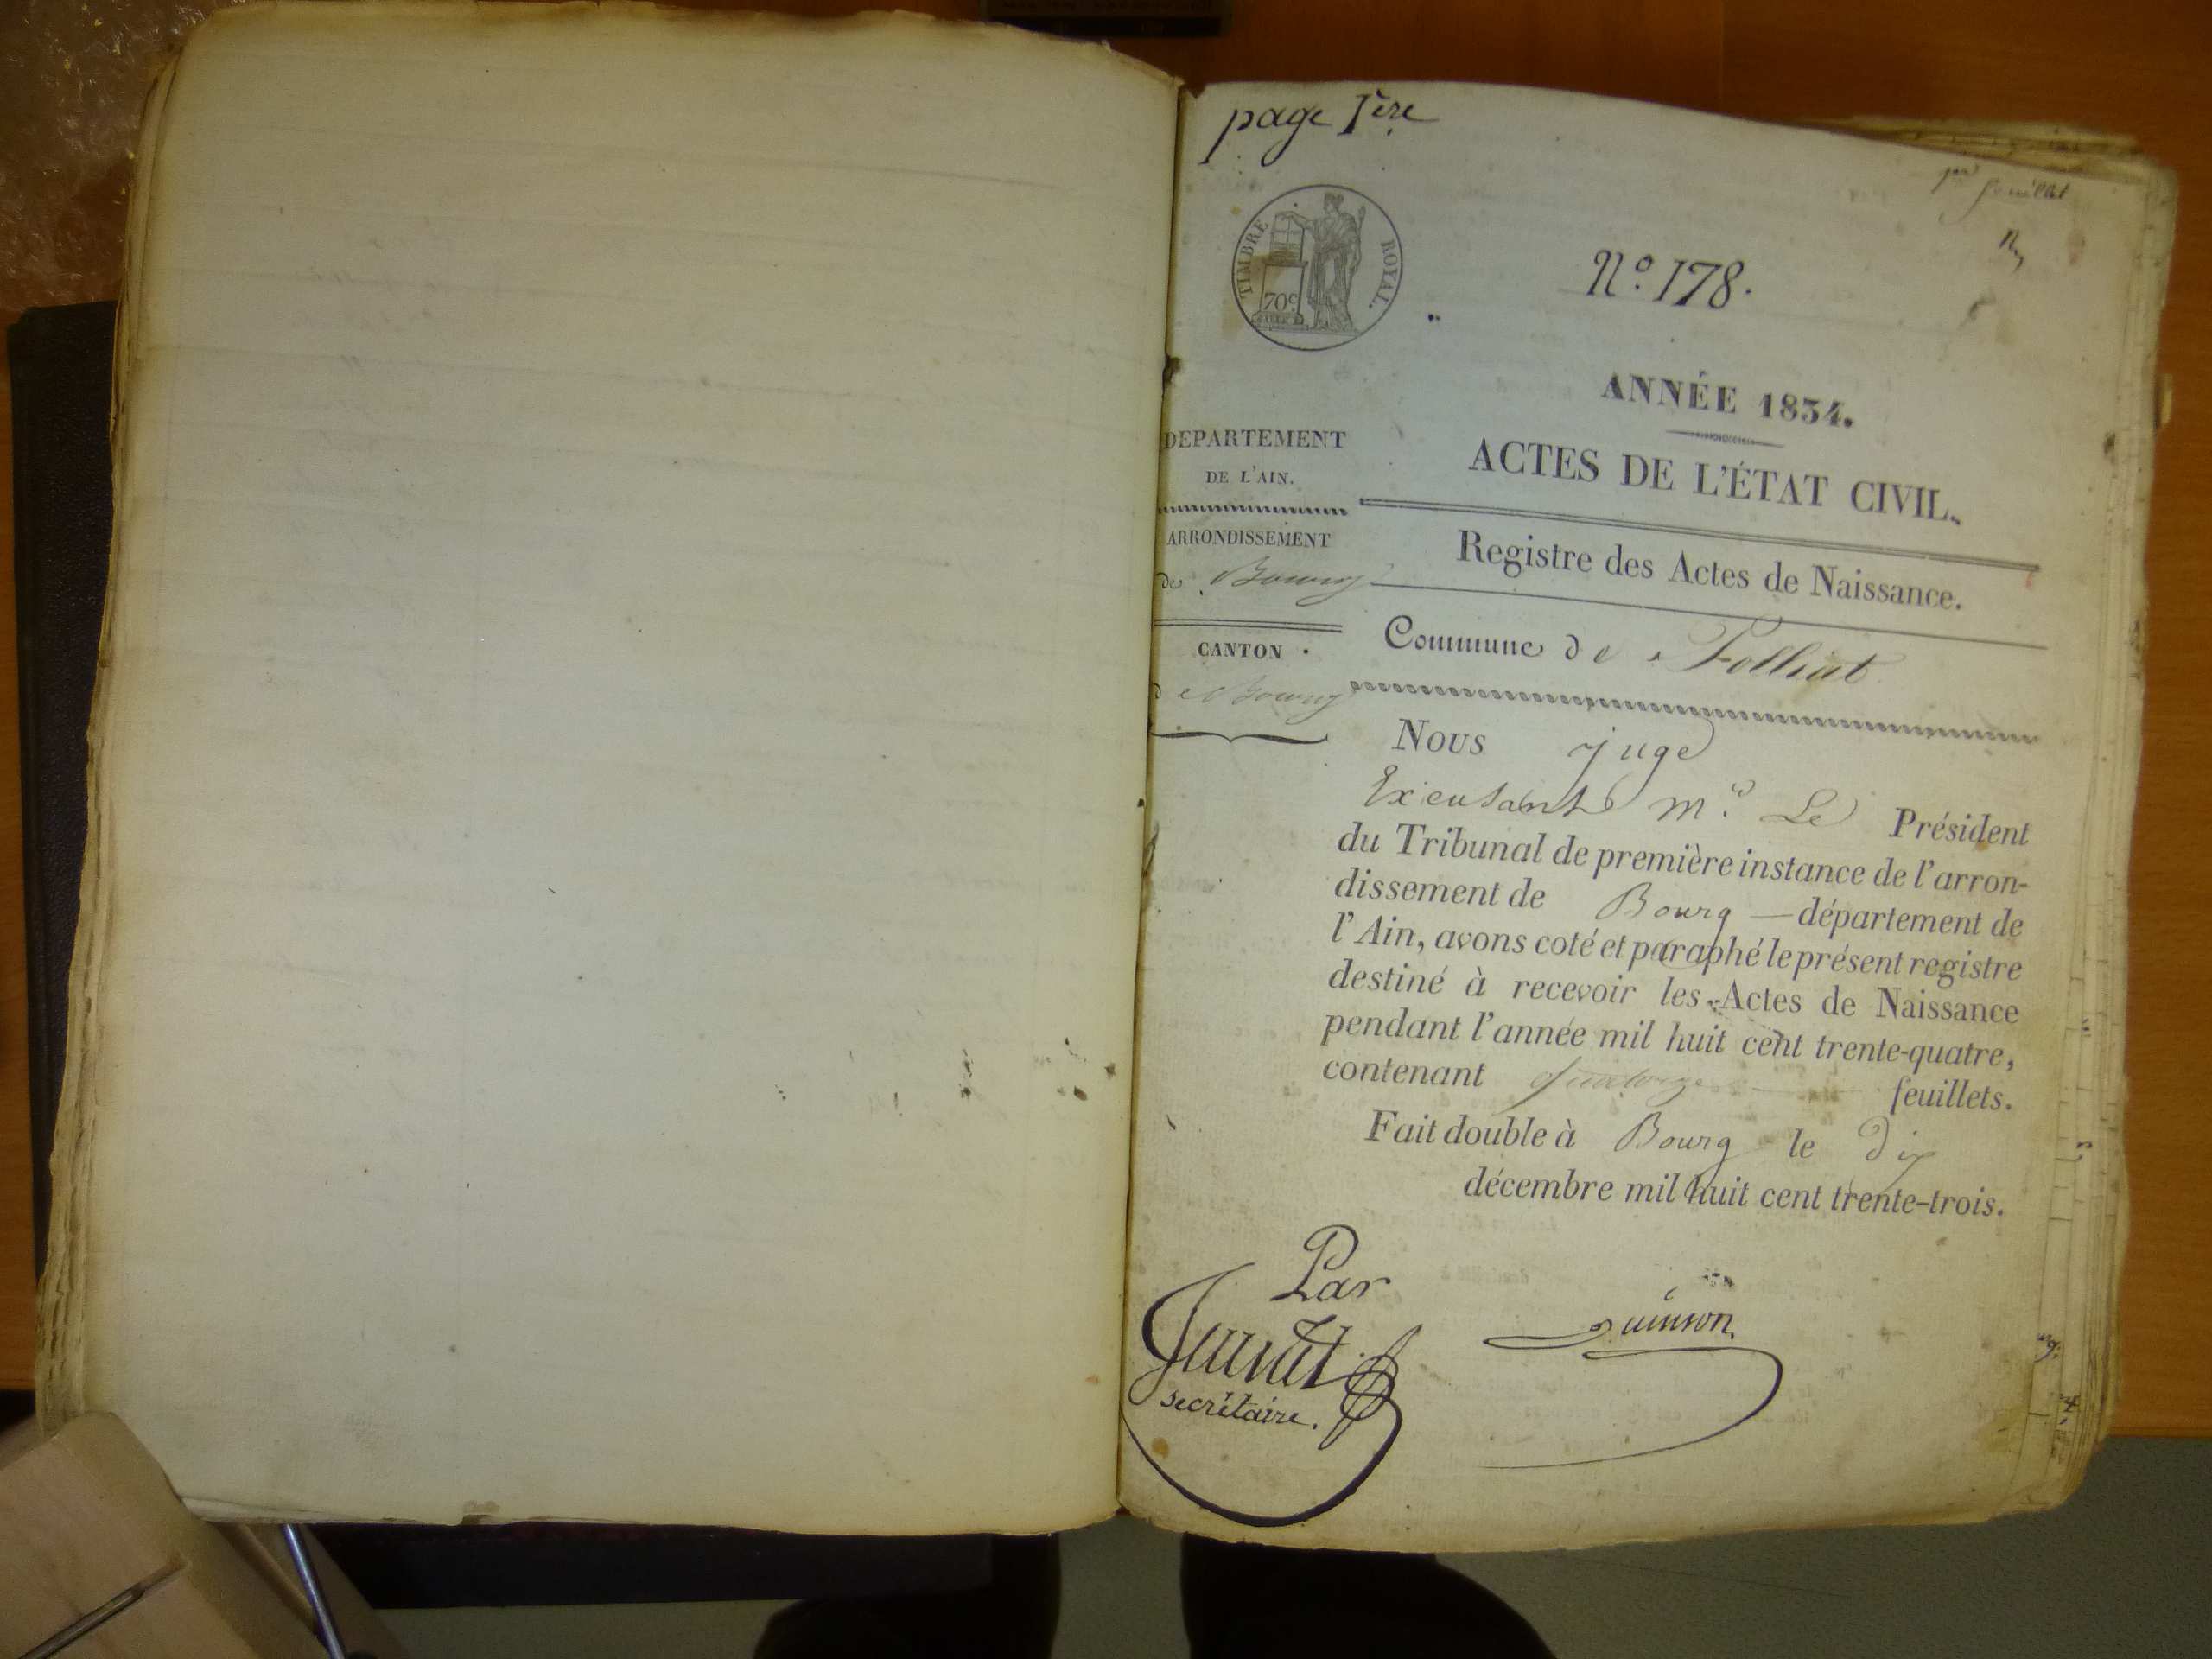 page 1ère
1er feuillet
TIMBRE ROYAL.
70c
N.° 178.
ANNÉE 1834.
ACTES DE L'ÉTAT CIVIL.
DEPARTEMENT
DE L'AIN.
ARRONDISSEMENT
de Bourg
CANTON
de Bourg
Registre des Actes de Naissance.
Commune de Polliat
Nous juge
Excusant Mr. Le Président
du Tribunal de première instance de l'arron-
dissement de Bourg — département de
l'Ain, avons coté et paraphé le présent registre
destiné à recevoir les Actes de Naissance
pendant l'année mil huit cent trente-quatre,
contenant quatorze feuillets.
Fait double à Bourg le dix
décembre mil huit cent trente-trois.
Par
secrétaire.